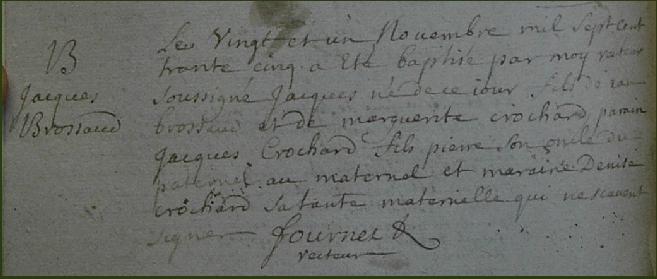 B
Jacques
Brossaud
Les Vingt et un Novembre mil Sept Cent
trante cinq a Eté baptisé par moy recteur
soussigné Jacques né de ce iour fils de ian
brossaud et de marguerite crochard parain
Jacques Crochard fils pierre Son oncle du
au maternel et maraine Denise
crochard Sa tante maternelle qui ne scavent
signer fournet
recteur